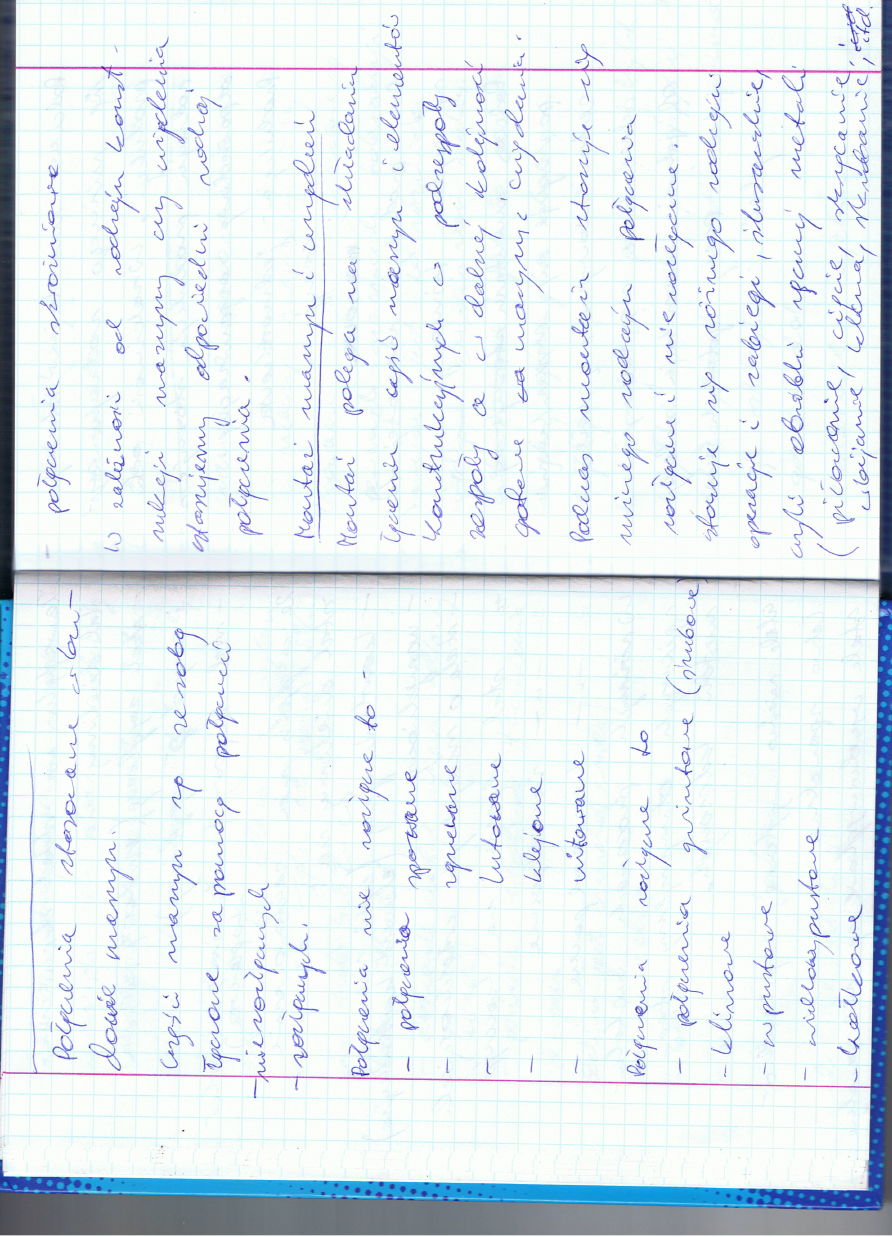 Połączenia stosowane w bu-
dowie maszyn.
Części maszyn np ze sobą
łączone za pomocą połączeń
- nierozłącznych
- rozłącznych.
Połączenia nie rozłączne to -
- połączenia spawane
- zgrzewane
- lutowane
- klejone
- nitowane
Połączenia rozłączne to
- połączenia gwintowe (śrubowe)
- klinowe
- wpustowe
- wielowypustowe
- kołkowe
połączenia sworzniowe
W zależności od rodzaju konst-
rukcji maszyny czy urządzenia
stosujemy odpowiedni rodzaj
połączenia.
Montaż maszyn i urządzeń
Montaż polega na składaniu
łączeniu części maszyn i elementów
konstrukcyjnych w podzespoły
zespoły a w dalszej kolejności
gotowe maszyny i urządzenia.
Podczas montażu stosuje się
różnego rodzaju połączenia
rozłączne i nierozłączne.
stosuje się różnego rodzaju
operacje i zabiegi ślusarskie,
czyli obróbki ręcznej metali
(piłowanie, cięcie, skręcanie,
wbijanie, skrobanie, itd.